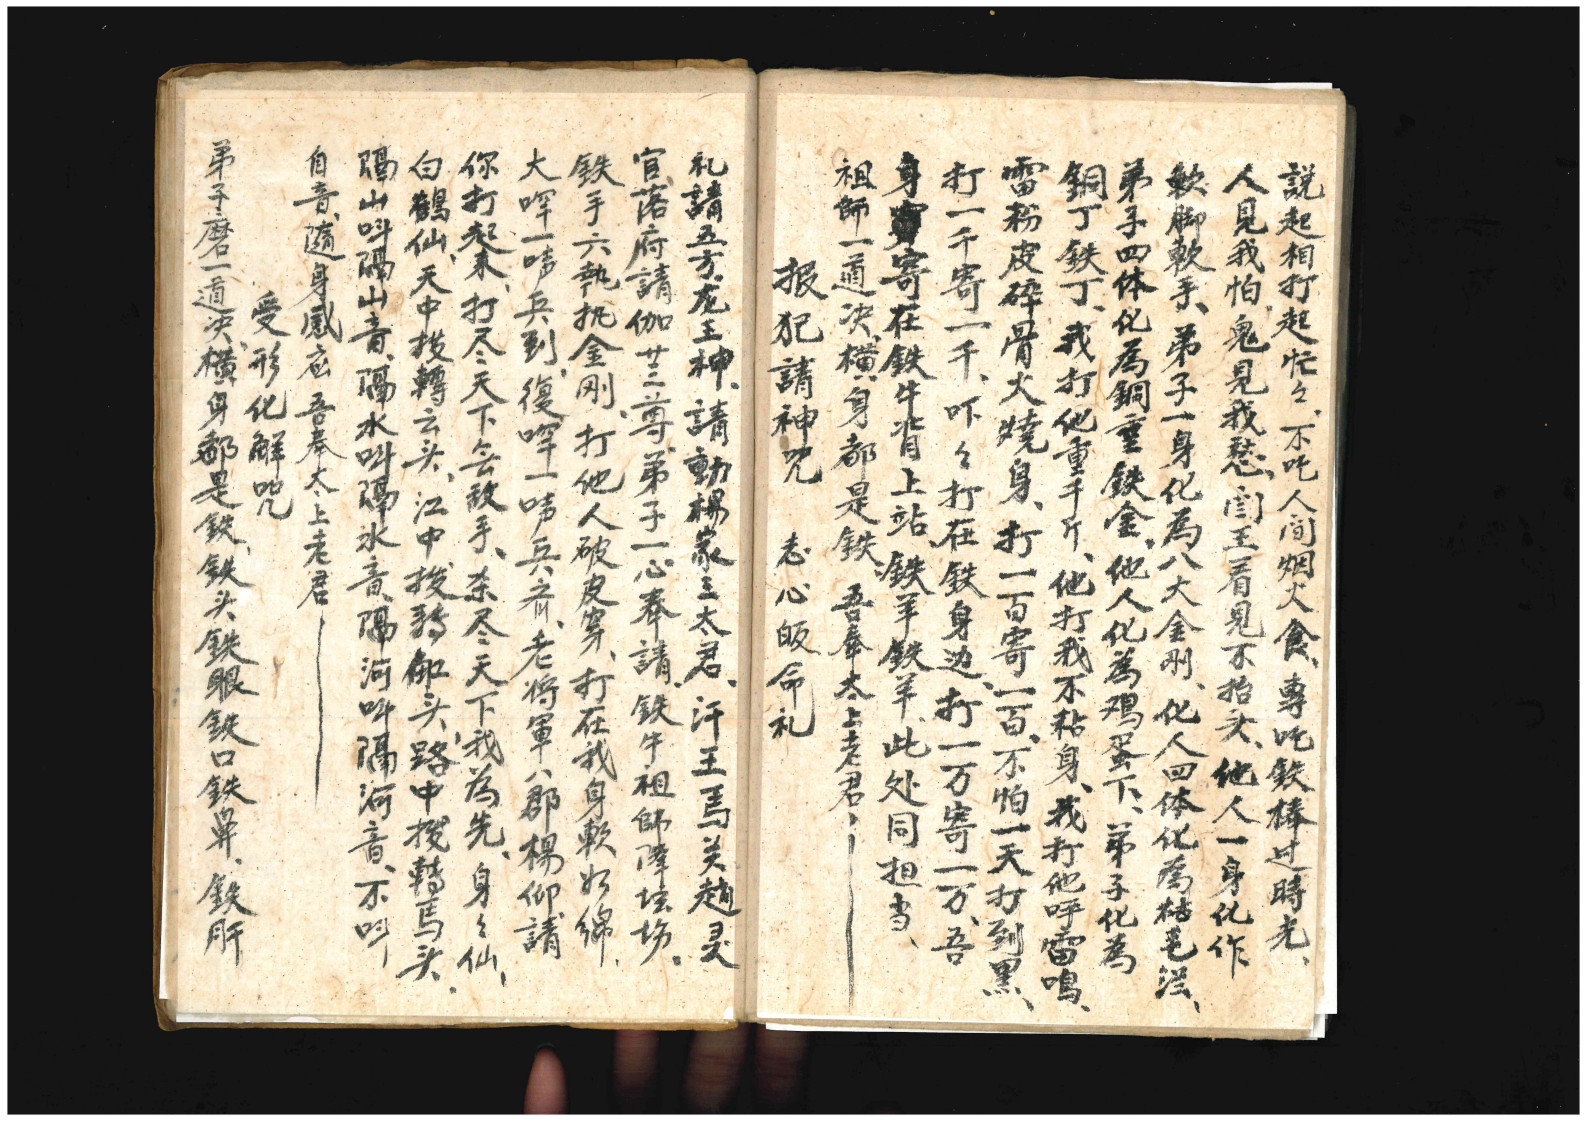 説起相打起忙々、不吃人间烟火食、專吃鉄棒过時光、
人見我怕、鬼見我愁、闫王看見不抬头、他人一身化作
軟脚軟手、弟子一身化為八大金刚、化人四体化為枯毛
弟子四体化為銅重鉄金、他人化為鸡蛋下、弟子化為
銅丁鉄丁、我打他重千斤、他打我不粘身、我打他呼雷鳴、
雷粉皮碎骨火燒身、打一百寄一百、不怕一天打到黑、
打一千寄一千、吓々打在鉄身边、打一万寄一万、吾
身寄在鉄牛背上站、鉄羊鉄羊、此处同担当、
祖師一道决、橫身都是鉄、吾奉太上老君、
报犯請神咒　志心皈命礼
礼請五方龙王神、請動楊家三太君、汗王馬关趙灵
官、落府請伽廿三尊、弟子一心奉請、鉄牛祖師降坛场。
鉄手六執扒金刚、打他人破皮穿、打在我身軟如綿、
大哗一啼兵到、復哗一啼兵齐、老将軍八郡楊仰請
你打起来、打尽天下무敌手、杀尽天下我為先、身々仙、
白鶴仙、天中拨轉云头、江中拨轉船头、路中拨轉馬头、
隔山叫隔山音、隔水叫隔水音、隔河叫隔河音、不叫
自音、隨身感应　吾奉太上老君
受形化解咒
弟子磨一道决、橫身都是鉄、鉄头鉄眼鉄口鉄鼻、鉄肝